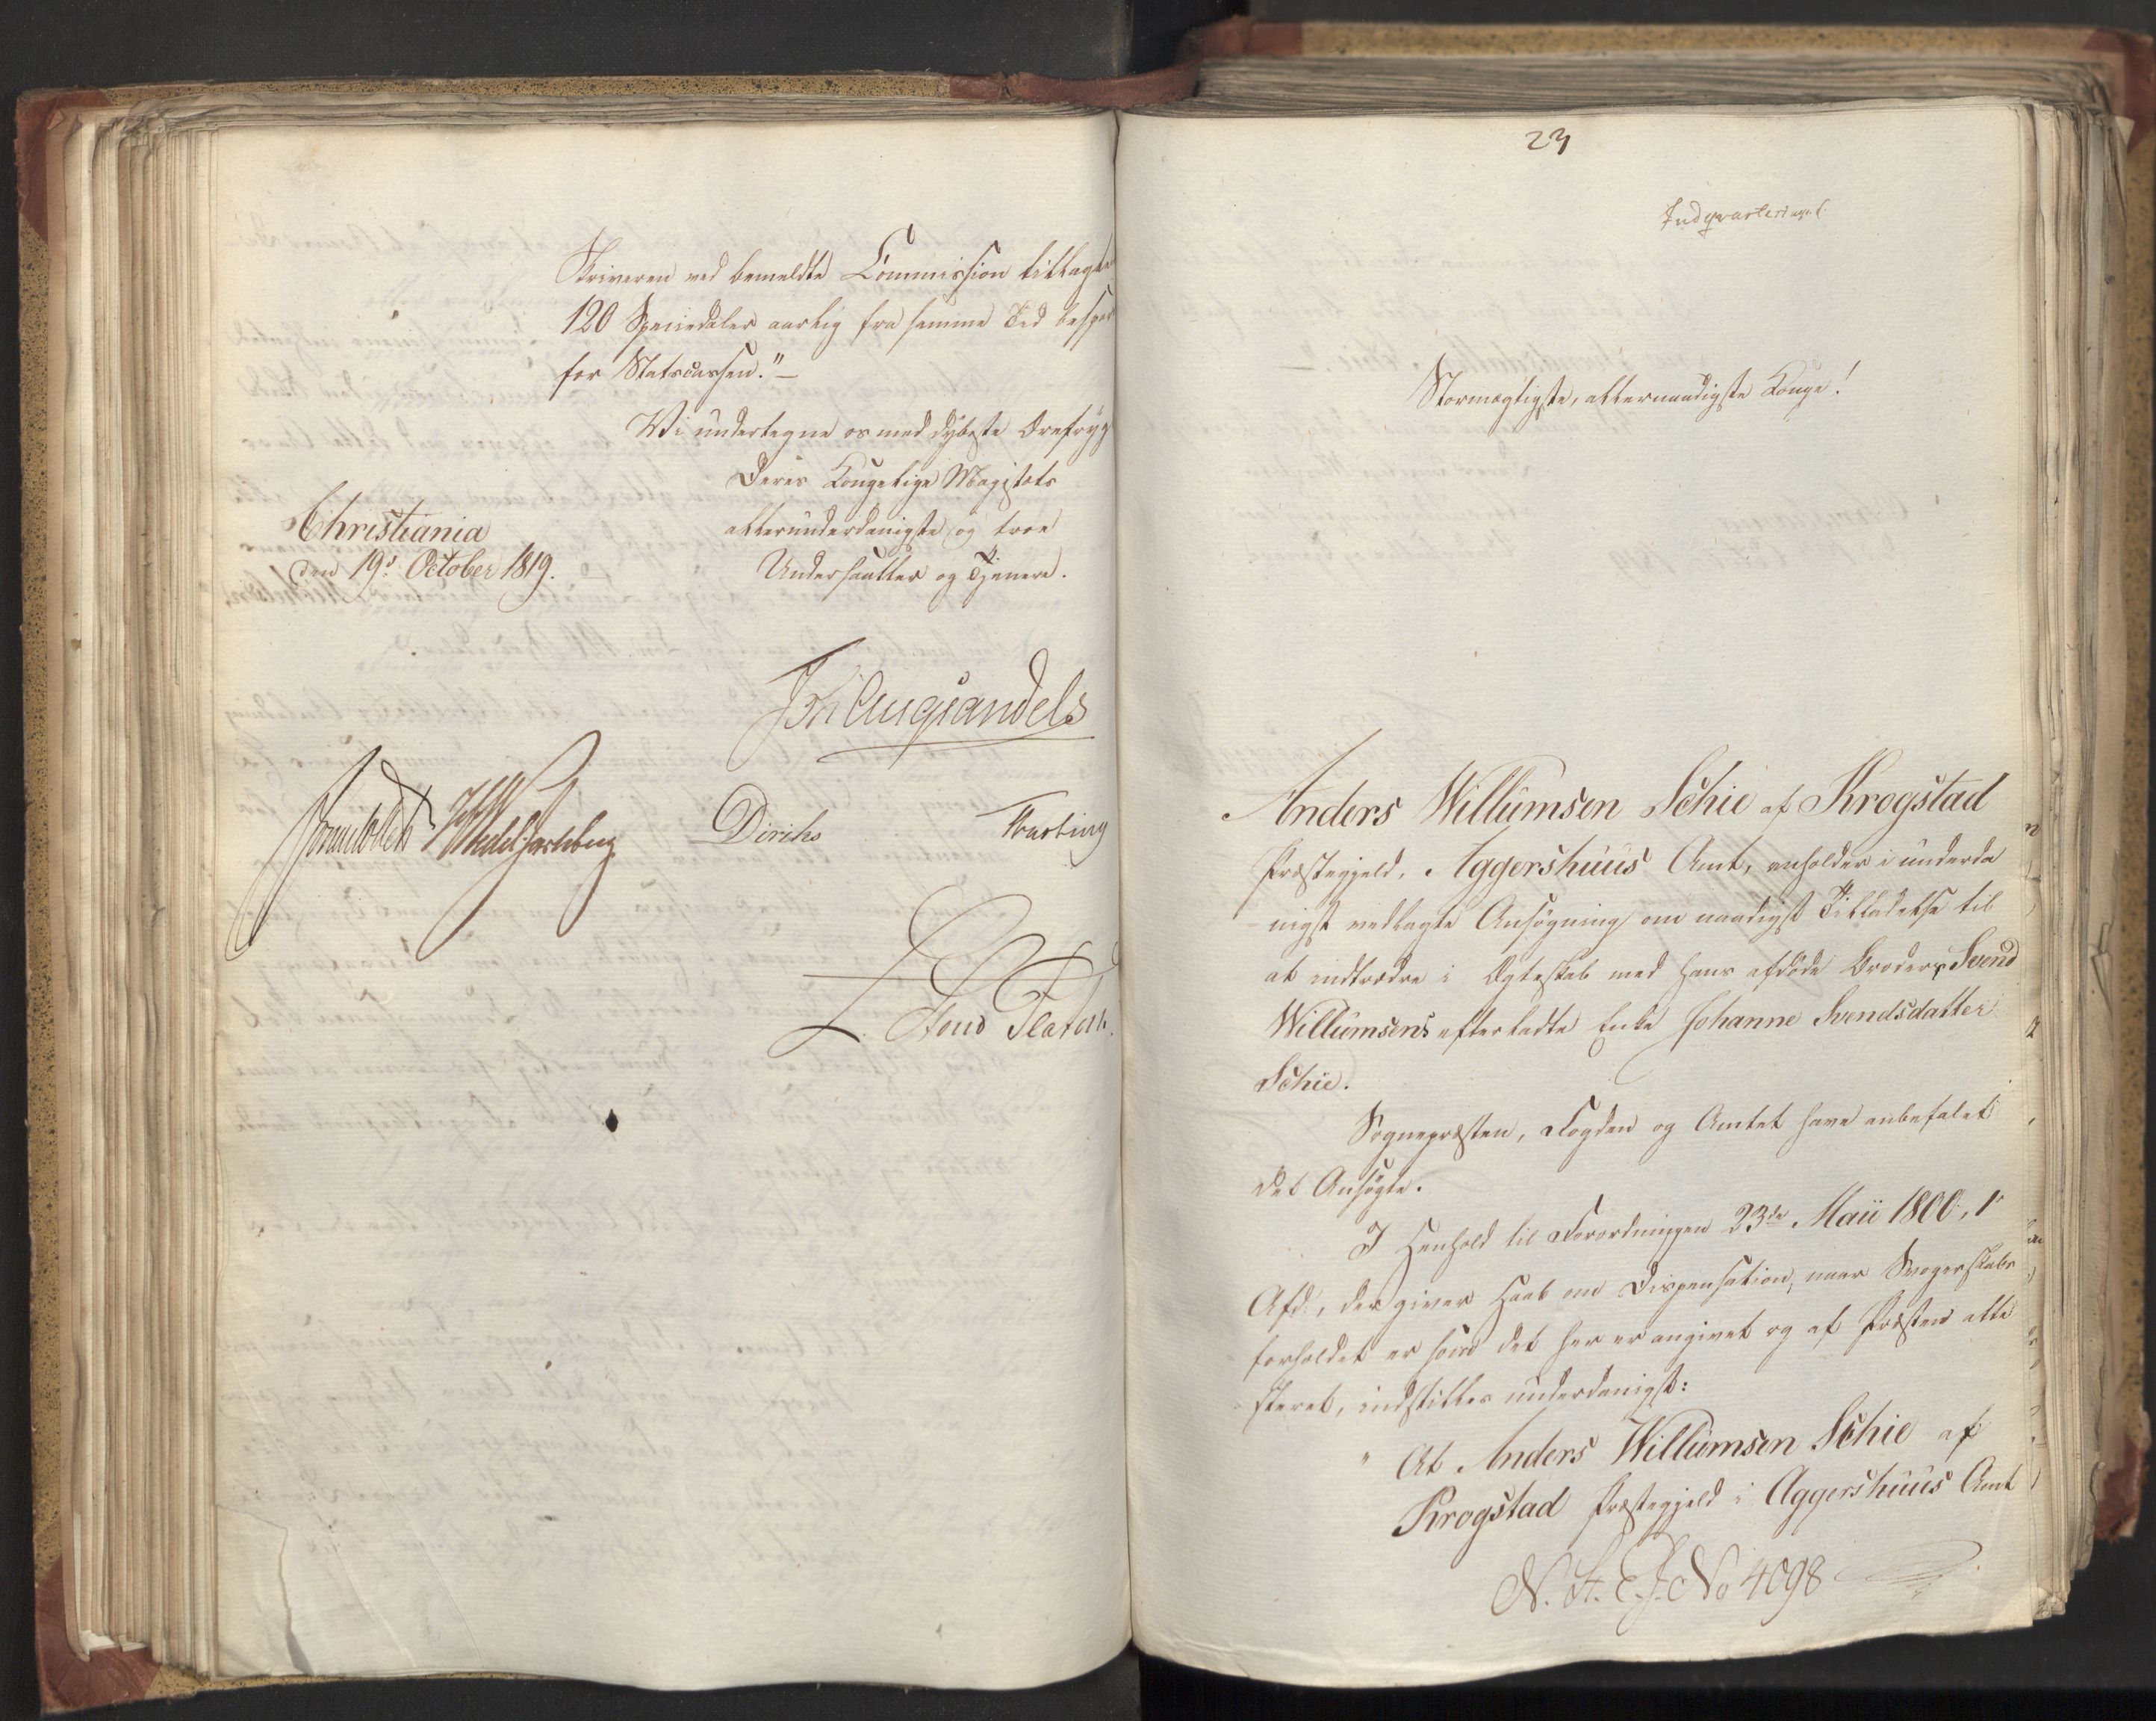 Skriveren ved bemeldte Commission tillagte
120 Speciedaler aarlig fra samme Tid bespar
for Statscassen."-
Vi undertegne os med dybeste Ærefrygt
Deres Kongelige Majestæts
allerunderdanigste og troe
Undersaatter og Tjenere.
Christiania
den 19de October 1819.
Joh Aug Sandels
Sommerhielm HWedel Jarlsberg
Diriks
Fasting
L. Stoud Platou.
23
Indqvarteringsf.
Stormægtigste, allernaadigste Konge!
Anders Willumsen Schie af Krogstad
Præstegjeld, Aggershuus Amt, anholder i underda
nigst vedlagte Ansøgning om naadigst Tilladelse til
at indtræde i Ægteskab med hans afdøde Broder, Svend
Willumsens efterladte Enke Johanne Svendsdatter
Schie.
Sognepræsten, Fogden og Amtet have anbefalet
det Ansøgte.
I Henhold til Forordningen 23de Maii 1800, 1
Afd., der giver Haab om Dispensation, naar Svogerskabs
forholdet er som det her er angivet og af Præsten atte
steret, indstilles underdanigst:
" At Anders Willumsen Schie af
Krogstad Præstegjeld i Aggershuus Amt
N. St. E. J. No 4098